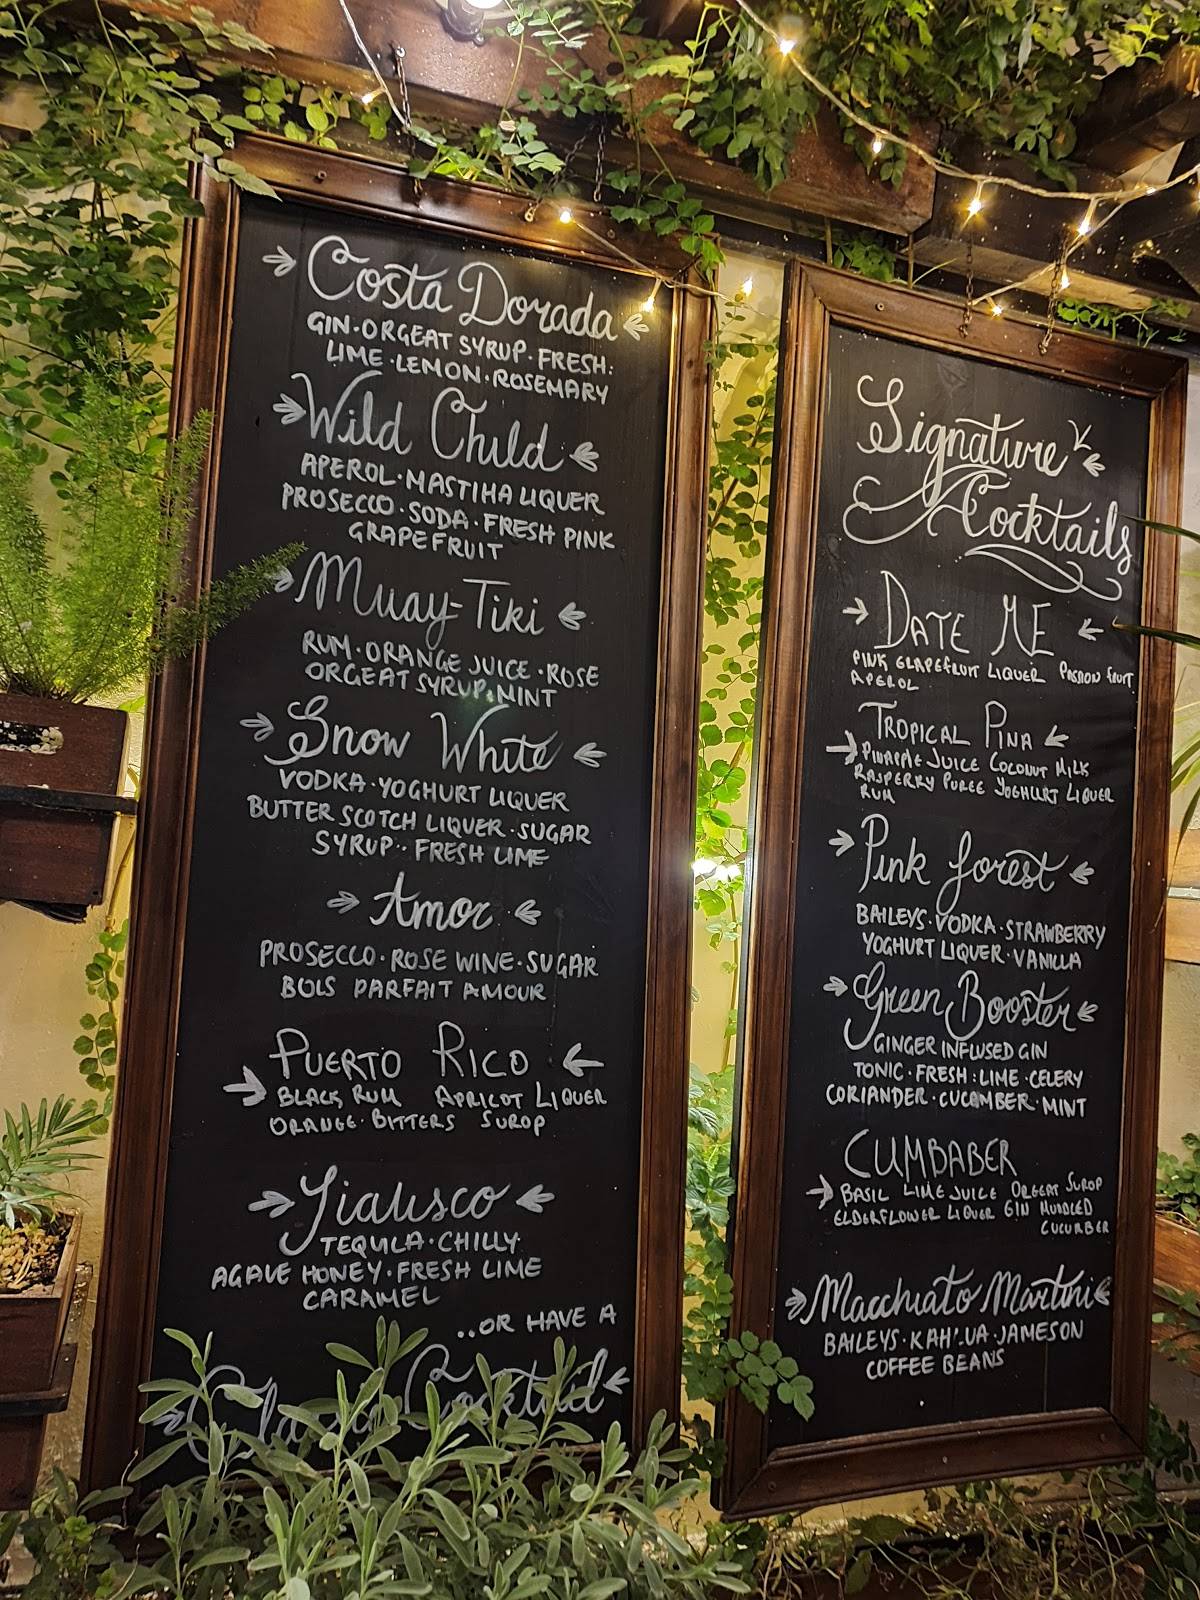 Costa Dorada
GIN·ORGEAT SYRUP·FRESH:
LIME·LEMON·ROSEMARY
Wild Child
APEROL·MASTIHA LIQUER
PROSECCO·SODA·FRESH PINK
GRAPEFRUIT
Muay-Tiki
RUM·ORANGE JUICE·ROSE
ORGEAT SYRUP·MINT
Snow White
VODKA·YOGHURT LIQUER
BUTTER SCOTCH LIQUER·SUGAR
SYRUP·FRESH LIME
Amor
PROSECCO·ROSE WINE·SUGAR
BOLS PARFAIT AMOUR
PUERTO RICO
BLACK RUM APRICOT LIQUER
ORANGE·BITTERS SUROP
Jialisco
TEQUILA·CHILLY
AGAVE HONEY·FRESH LIME
CARAMEL
..OR HAVE A
Cocktail
Signature
Cocktails
DATE ME
PINK GRAPEFRUIT LIQUER PASSION FRUIT
APEROL
TROPICAL PINA
PINAPPLE JUICE COCONUT MILK
RASPERRY PUREE YOGHURT LIQUER
RUM
Pink forest
BAILEYS·VODKA·STRAWBERRY
YOGHURT LIQUER·VANILLA
Green Booster
GINGER INFLUSED GIN
TONIC·FRESH:LIME·CELERY
CORIANDER·CUCOMBER·MINT
CUMBABER
BASIL LIME JUICE ORGEAT SUROP
ELDERFLOWER LIQUER GIN MUDLED
CUCURBER
Macchiato Martini
BAILEYS·KAHLUA·JAMESON
COFFEE BEANS